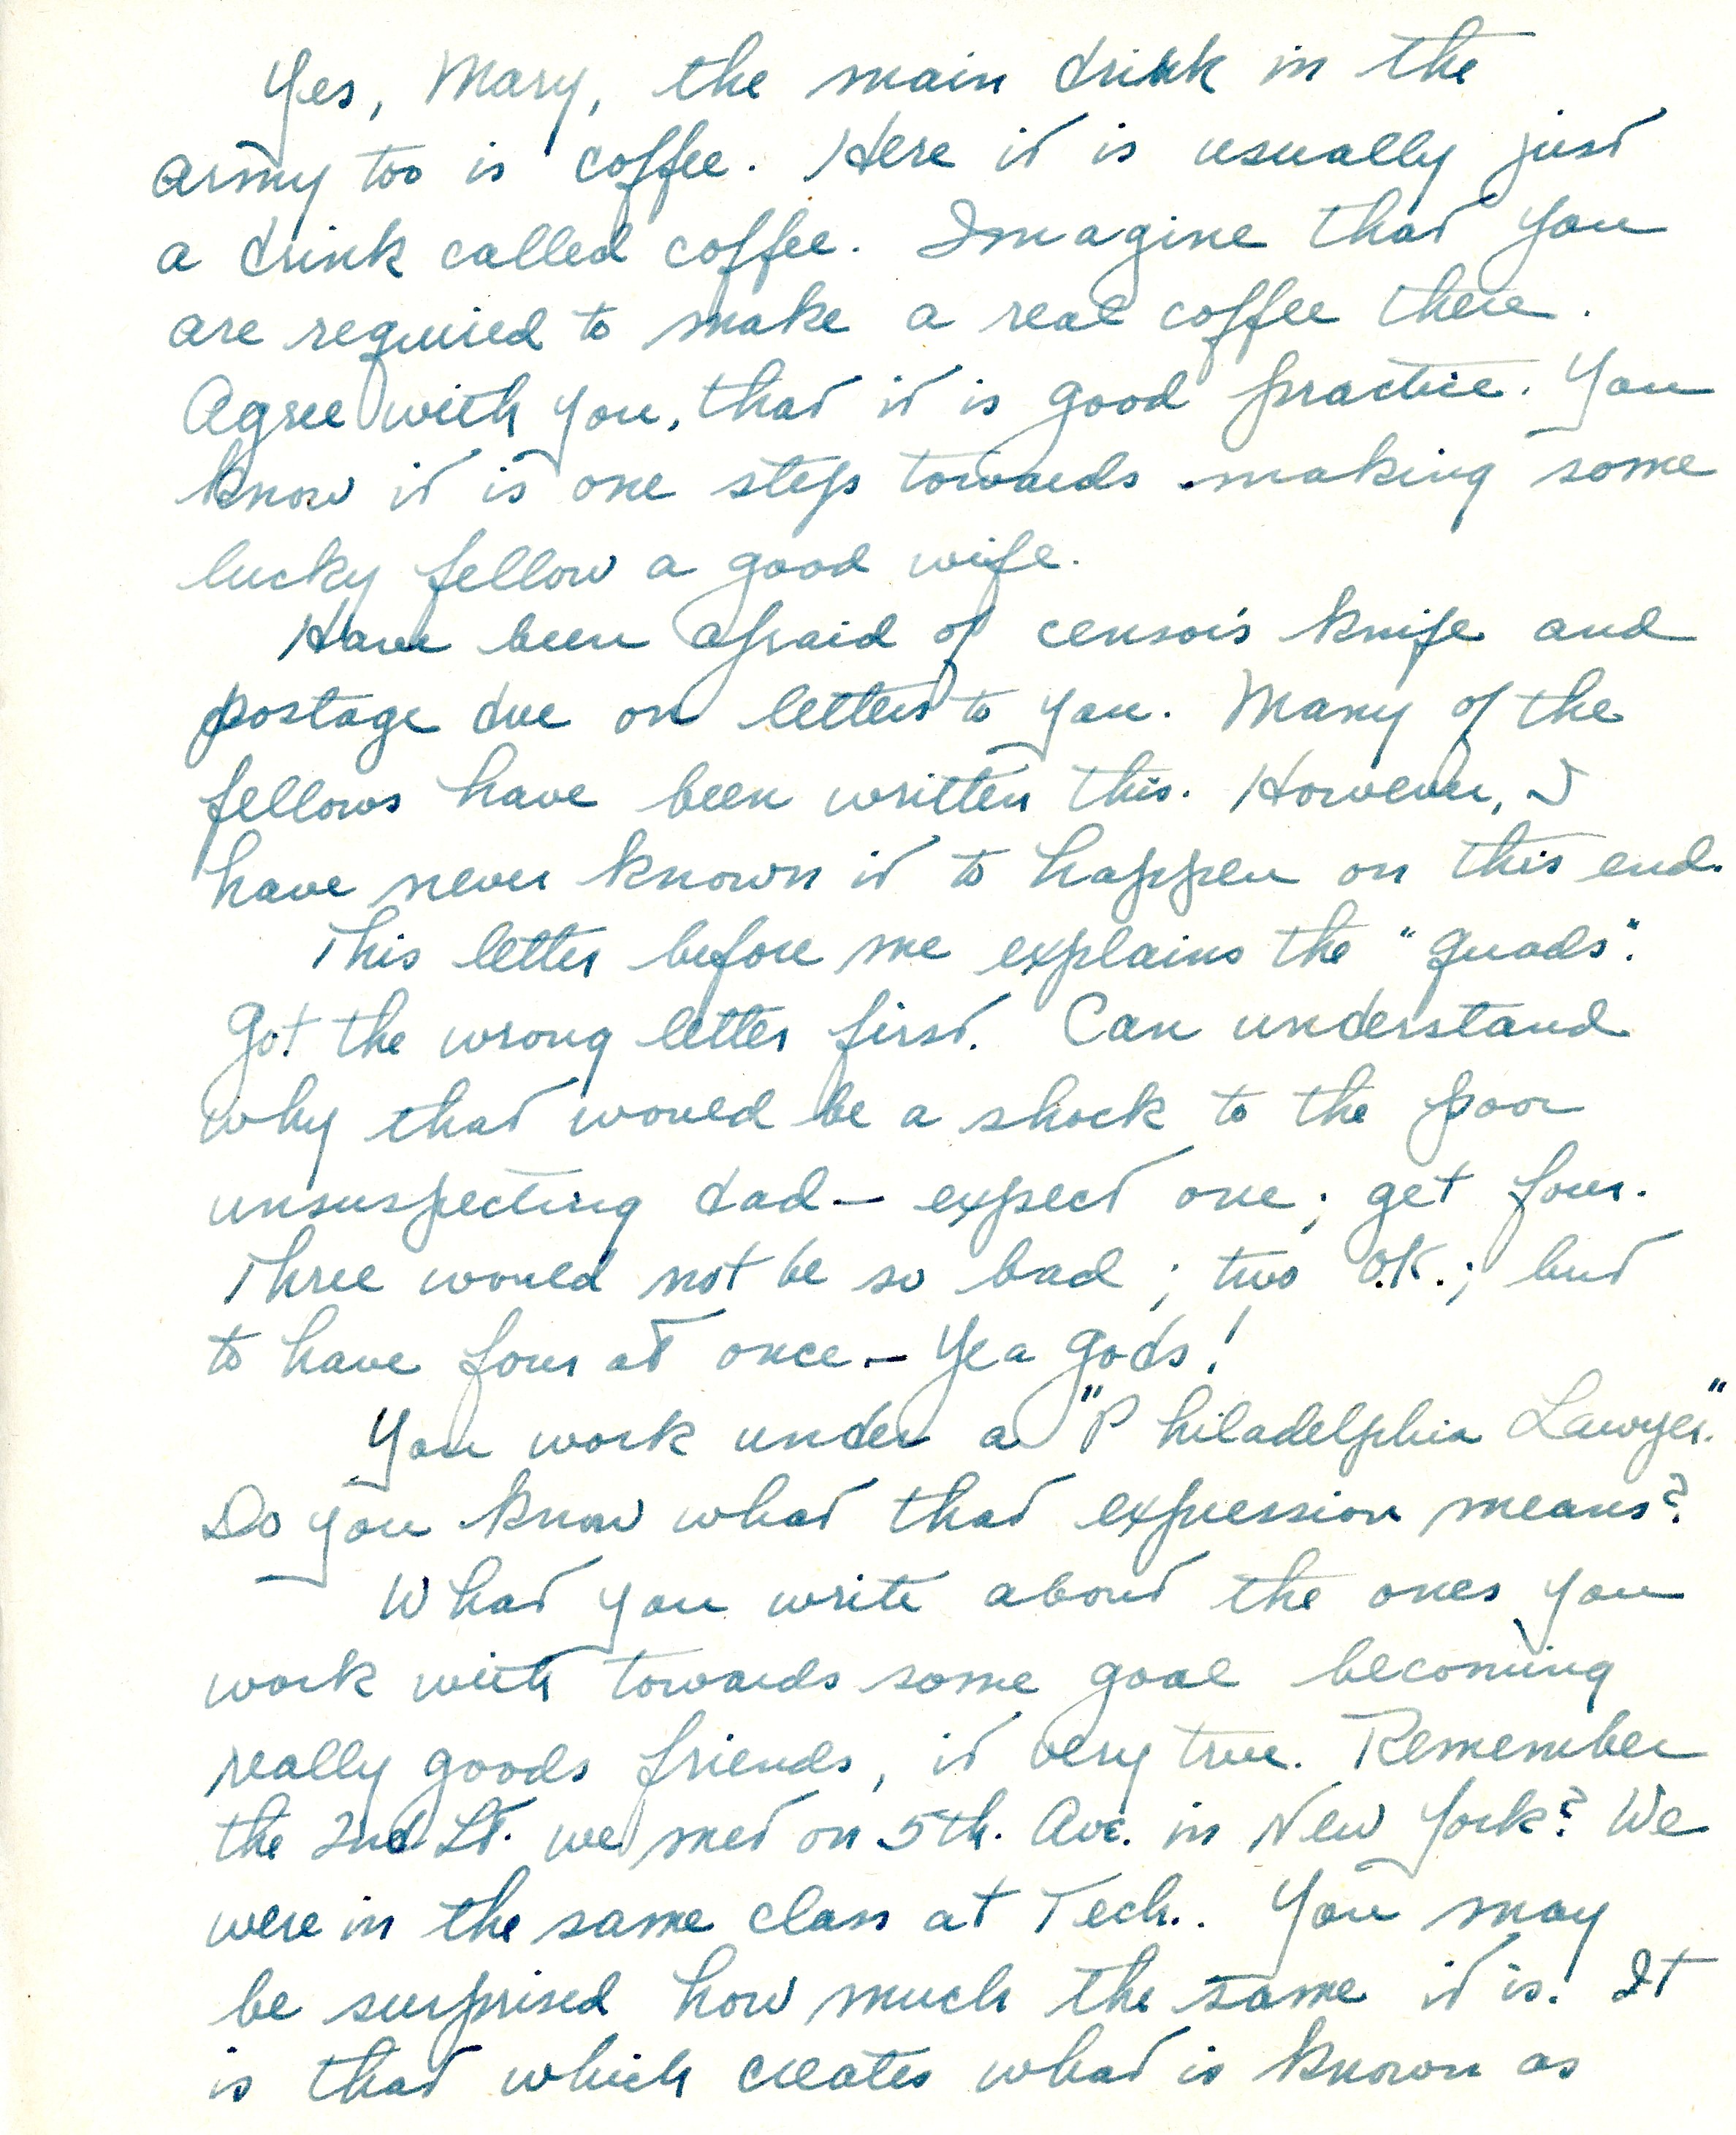 Yes, Mary, the main drink in the
army too is coffee. Here it is usually just
a drink called coffee. Imagine that you
are required to make a real coffee there.
Agree with you, that it is good practice. You
know it is one step towards making some
lucky fellow a good wife.
Have been afraid of censor's knife and
postage due on letters to you. Many of the
fellows have been written this. However, I
have never known it to happen on this end.
This letter before me explains the "quads".
Got the wrong letter first. Can understand
why that would be a shock to the poor
unsuspecting dad — expect one; get four.
Three would not be so bad; two O.K.; but
to have four at once — Yea gods!
You work under a "Philadelphia Lawyer."
Do you know what that expression means?
What you write about the ones you
work with towards some goal becoming
really goods friends, it very true. Remember
the 2nd Lt. we met on 5th. Ave. in New York? We
were in the same class at Tech.. You may
be surprised how much the same it is! It
is that which creates what is known as